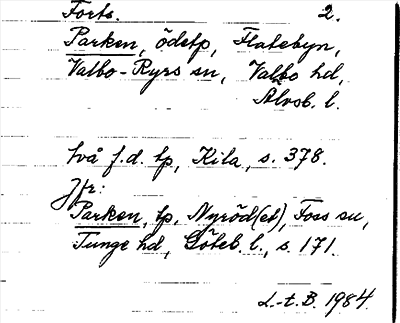 Forts. 2.
Parken, ödetp, Flatebyn,
Valbo-Ryrs sn, Valbo hd,
Älvsb. l.
två f.d. tp, Kila, s. 378.
Jfr:
Parken, tp, Nyröd(et), Foss sn,
Tunge hd, Göteb. l., s. 171.
L-t. B. 1984.